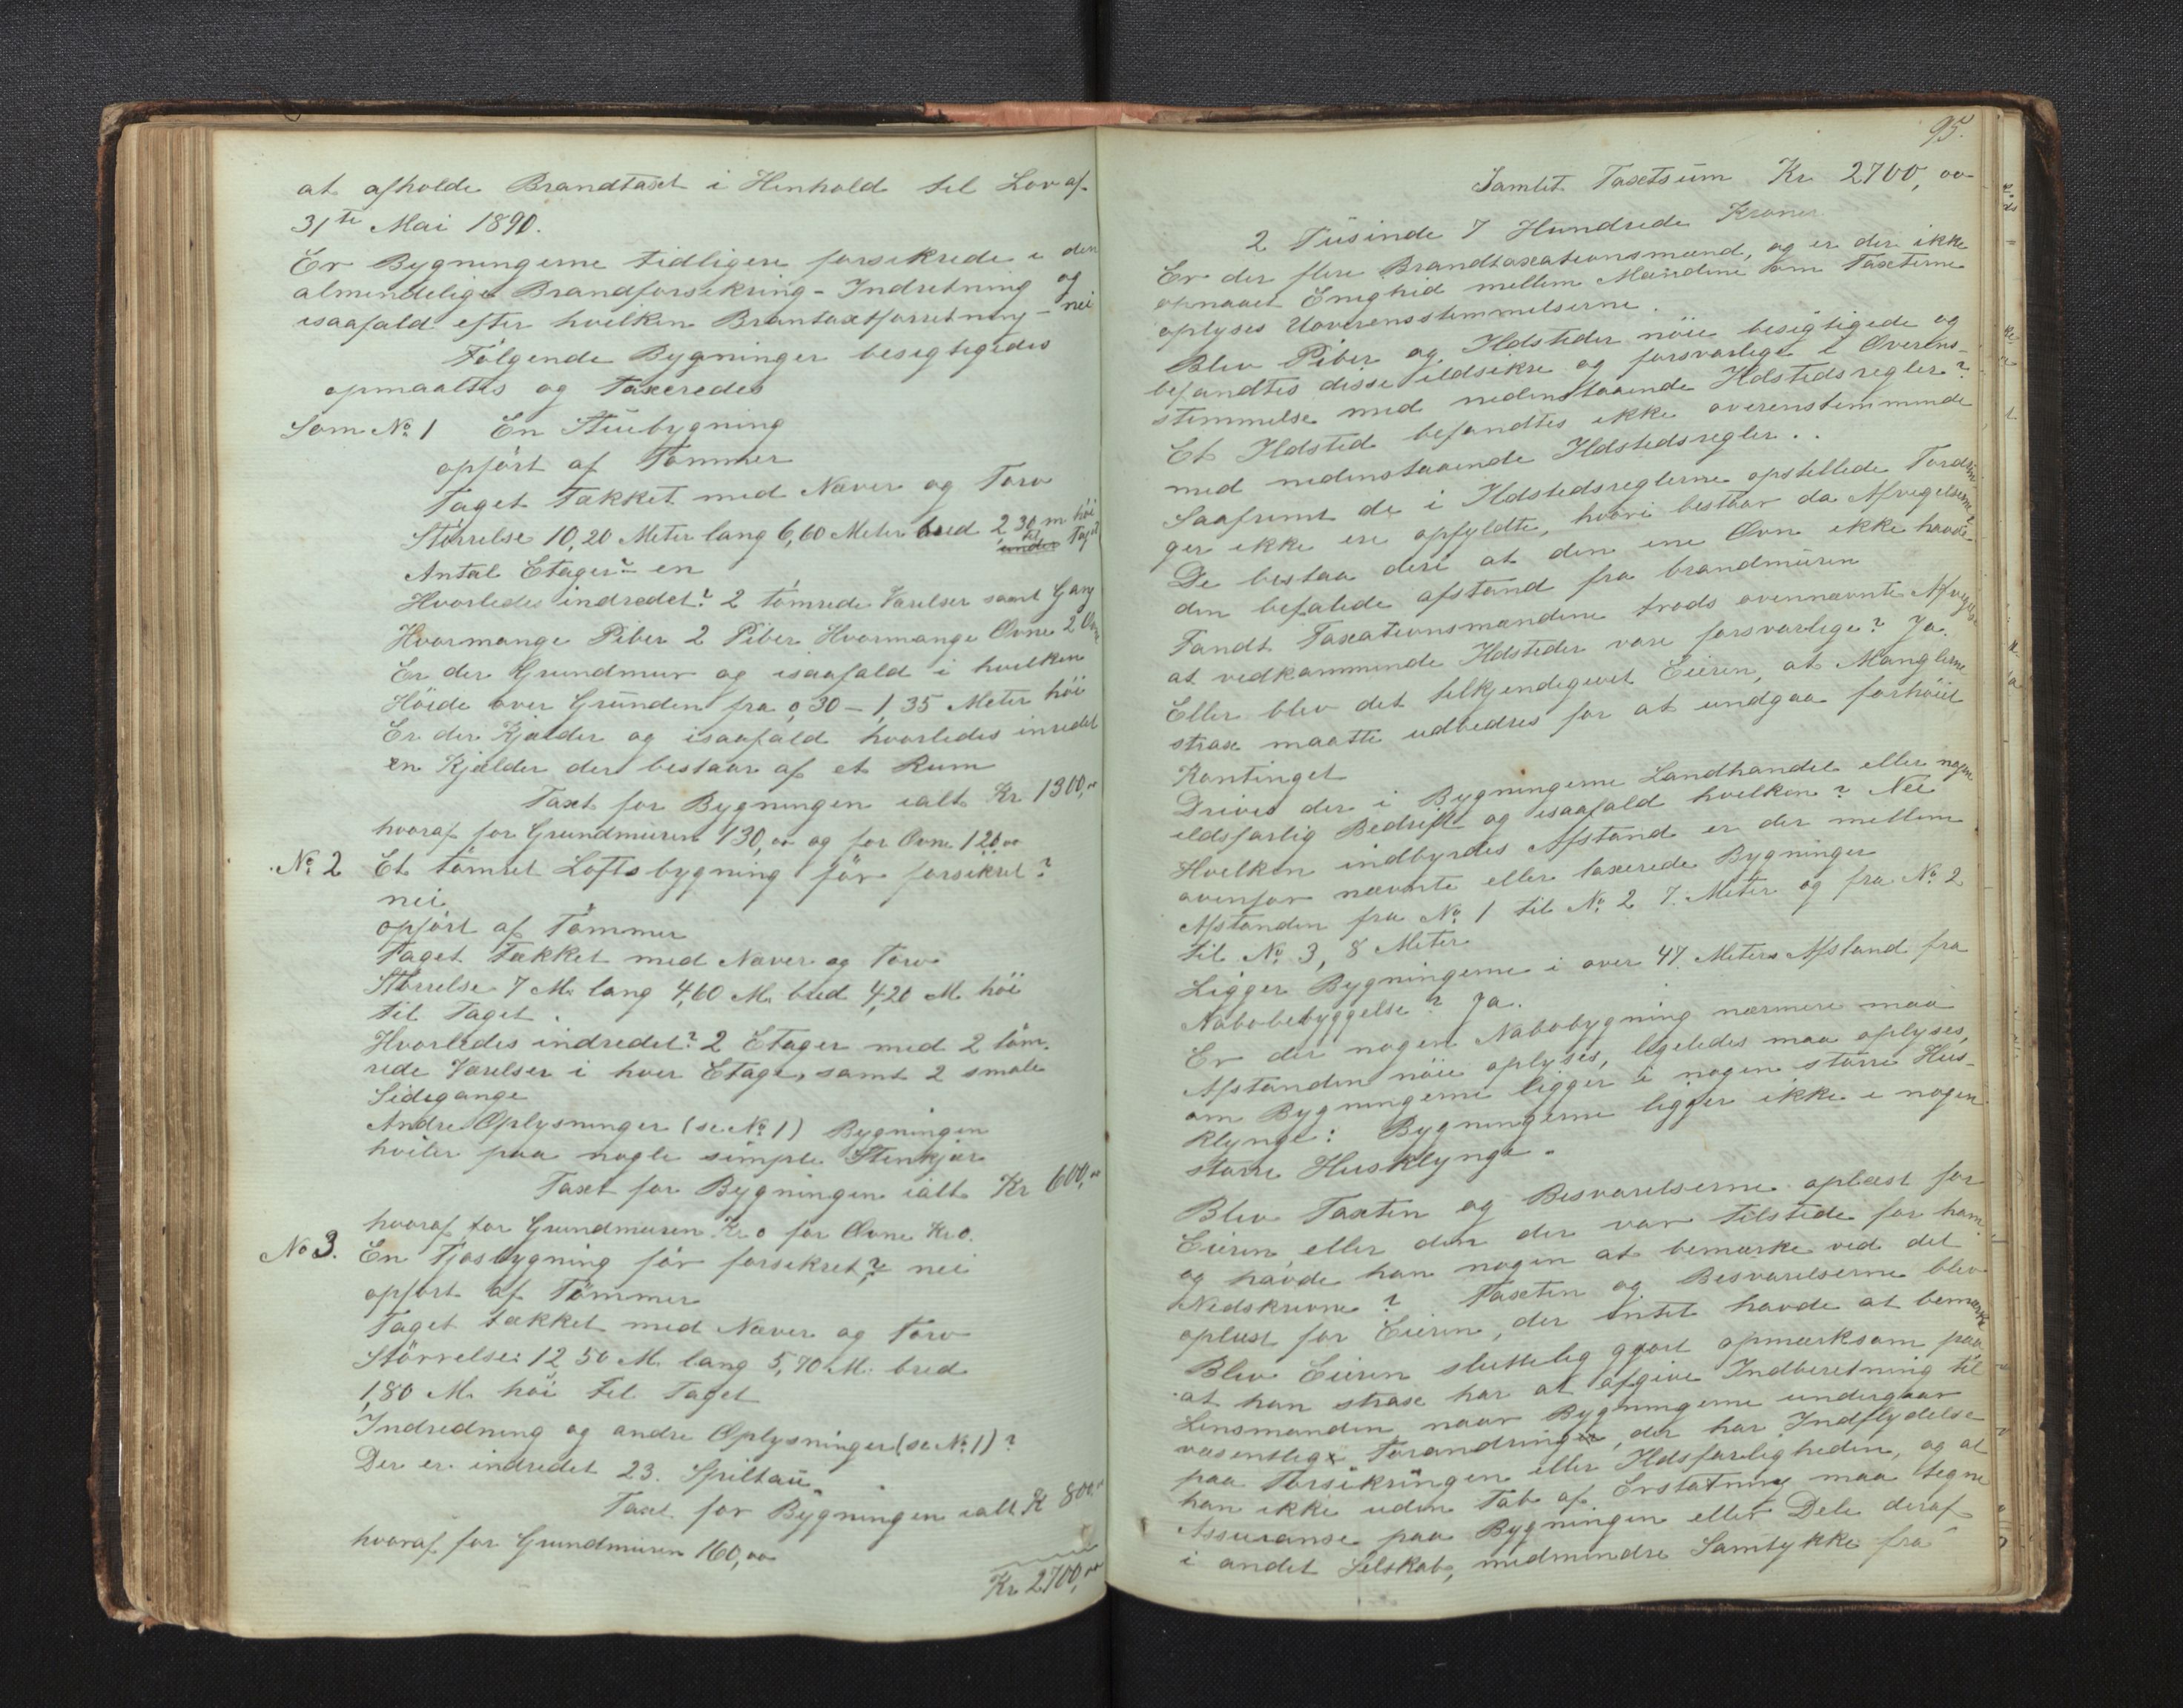 at afholde Brandtaxt i Henhold til Lov af
31te Mai 1890.
Er Bygningerne tidligere forsikrede i den
almindelige Brandforsikring-Indretning og
isaafald efter hvilken Brantaxtforretning – nei
Følgende Bygninger besigtigedes
opmaaltes og Taxeredes
Som No. 1 En Stuebygning
opført af Tømmer
Taget Tækket med Næver og Torv
Størrelse 10,20 Meter lang 6,60 Meter bred 2,30 m. høi
til under Taget
Antal Etager? en
Hvorledes indredet? 2 tømrede Værelser samt Gang
Hvormange Piber 2 Piber Hvormange Ovne 2 Ovne
Er der Grundmur og isaafald i hvilken
Høide over Grunden fra 0,30 – 1,35 Meter høi
Er der Kjælder og isaafald hvorledes inredet
en Kjælder der bestaar af et Rum
Taxt for Bygningen ialt Kr 1300,00
hvoraf for Grundmuren 130,00 og for Ovne 120,00
No. 2 Et tømret Loftsbygning før forsikret?
nei
opført af Tømmer
Taget Tækket med Næver og Torv
Størrelse 7 M. lang 4,60 M. bred 4,20 M. høi
til Taget.
Hvorledes indredet? 2 Etager med 2 tøm-
rede Værelser i hver Etage, samt 2 smale
Sidegange
Andre Oplysninger (se No. 1) Bygningen
hviler paa nogle simple Stenkjær
Taxt for Bygningen ialt Kr 600,00
hvoraf for Grundmuren Kr. 0 for Ovne Kr 0.
No 3. En Fjøsbygning før forsikret? nei
opført af Tømmer
Taget tækket med Næver og Torv
Størrelse: 12,50 M. lang 5,70 M. bred
1,80 M. høi til Taget
Indredning og andre Oplysninger (se No. 1)?
Der er indredet 23. Spiltau.
Taxt for Bygningen ialt K 800,00
hvoraf for Grundmuren 160,00
Kr 2700,00
95.
Samlet Taxtsum Kr 2700,00
2 Tusinde 7 Hundrede Kroner
Er der flere Brandtaxationsmænd, og er der ikke
opnaaet Enighed mellem Mændene om Taxterne
oplyses Uoverensstemmelserne.
Blev Piber og Ildsteder nøie besigtigede og
befandtes disse ildsikre og forsvarlige i Overens-
stemmelse med nedenstaaende Ildstedsregler?
Et Ildsted befandtes ikke overenstemmende
med nedenstaaende Ildstedsregler..
Saafremt de i Ildstedsreglerne opstillede Fordrin-
ger ikke ere opfyldte, hvori bestaar da Afvigelserne?
De bestaa deri at den ene Ovn ikke havde
den befalede afstand fra brandmuren
Fandt Taxationsmændene trods ovennævnte Afvigelse
at vedkommende Ildsteder vare forsvarlige? Ja.
Eller blev det tilkjendegivet Eieren, at Manglerne
strax maatte udbedres for at undgaa forhøiet
Kontinget
Drives der i Bygningerne Landhandel eller nogen
ildsfarlig Bedrift og isaafald hvilken? Nei
Hvilken indbyrdes Afstand er der mellem
ovenfor nævnte eller taxerede Bygninger
Afstanden fra No. 1 til No. 2 7. Meter og fra No. 2
til No. 3, 8 Meter
Ligger Bygningerne i over 47. Meters Afstand fra
Nabobebyggelse? Ja.
Er der nogen Nabobygning nærmere maa
Afstanden nøie oplyses, ligeledes maa oplyses,
om Bygningerne ligger i nogen større Hus-
klynge: Bygningerne ligger ikke i nogen
større Husklynge.
Blev Taxten og Besvarelserne oplæst for
Eieren, eller den der var tilstede for ham
og havde han nogen at bemærke ved det
Nedskrevne? Taxten og Besvarelserne blev
oplæst for Eieren, der intet havde at bemærke
Blev Eieren sluttelig gjort opmærksom paa
at han strax har at afgive Indberetning til
Lensmanden naar Bygningerne undergaar
væsentlig Forandring, der har Indflydelse
paa Forsikringen eller Ildsfarligheden, og at
han ikke uden Tab af Erstatning maa tegne
Assuranse paa Bygningen eller Dele deraf
i andet Selskab, medmindre Samtykke fra